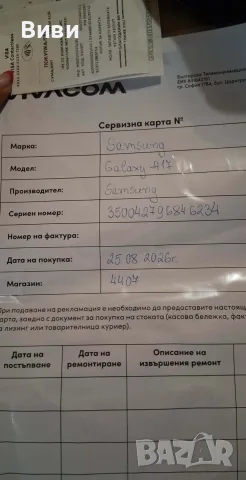 Виви
VISA
ПОКУПКА
VIVACOM
Сервизна карта №
Марка: Samsung
Модел: Galaxy A17
Производител: Samsung
Сериен номер: 350042796846234
Номер на фактура:
Дата на покупка: 25.08.2026г.
Магазин: 4407
При подаване на рекламация е необходимо да предоставите настоящ
карта, заедно с документ за покупка на стоката (касова бележка, фак
за лизинг или товарителница куриер).
Дата на постъпване
Дата на ремонтиране
Описание на извършения ремонт
bazar